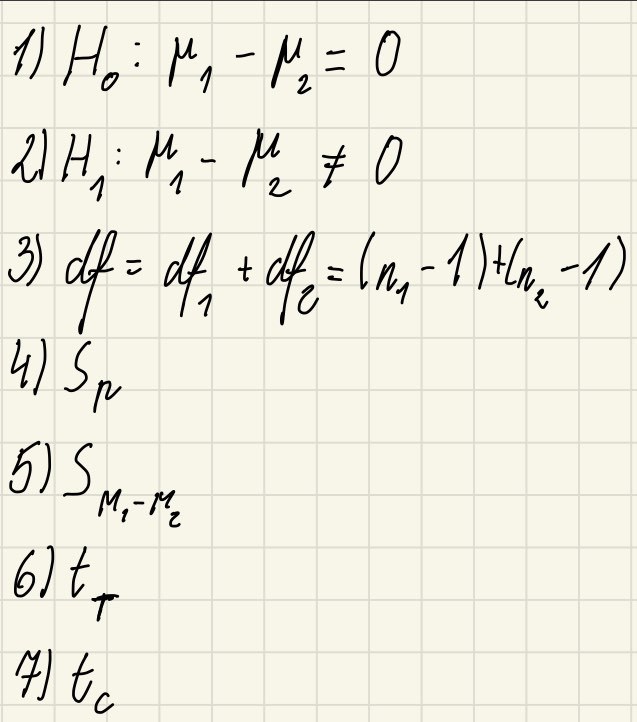 1) H₀ : μ₁ - μ₂ = 0
2) H₁ : μ₁ - μ₂ ≠ 0
3) df = df₁ + df₂ = (n₁ - 1) + (n₂ - 1)
4) Sₚ
5) S_M₁-M₂
6) t_T
7) t_c